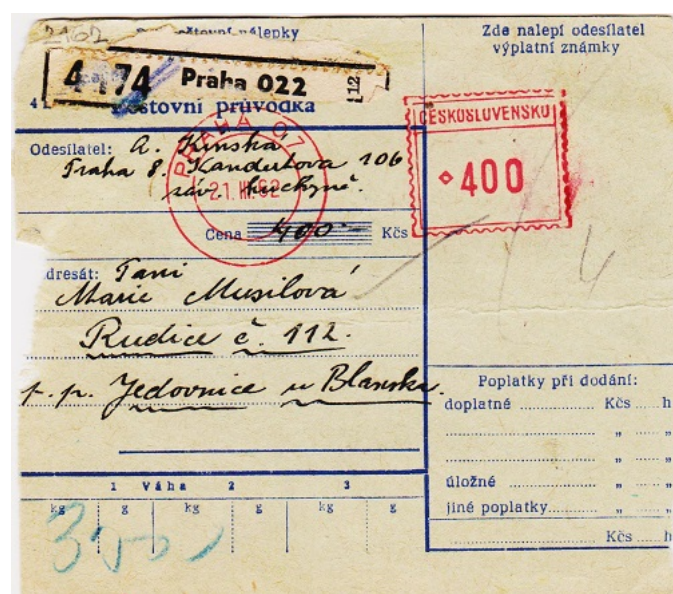 2162
nálepky
4 174 Praha 022
112
4 Poštovní průvodka
Zde nalepí odesílatel
výplatní známky
ČESKOSLOVENSKO
400
PRAHA 07
21. III. 62
Odesílatel: A. Kinská
Praha 8. Kandertova 106
záv. kuchyně.
Cena 400 Kčs
adresát: Paní
Marie Musilová
Rudice č. 112.
p. p. Jedovnice u Blanska.
Poplatky při dodání:
doplatné Kčs h
" "
" "
úložné " "
jiné poplatky " "
Kčs h
1 Váha 2 3
kg g kg g kg g